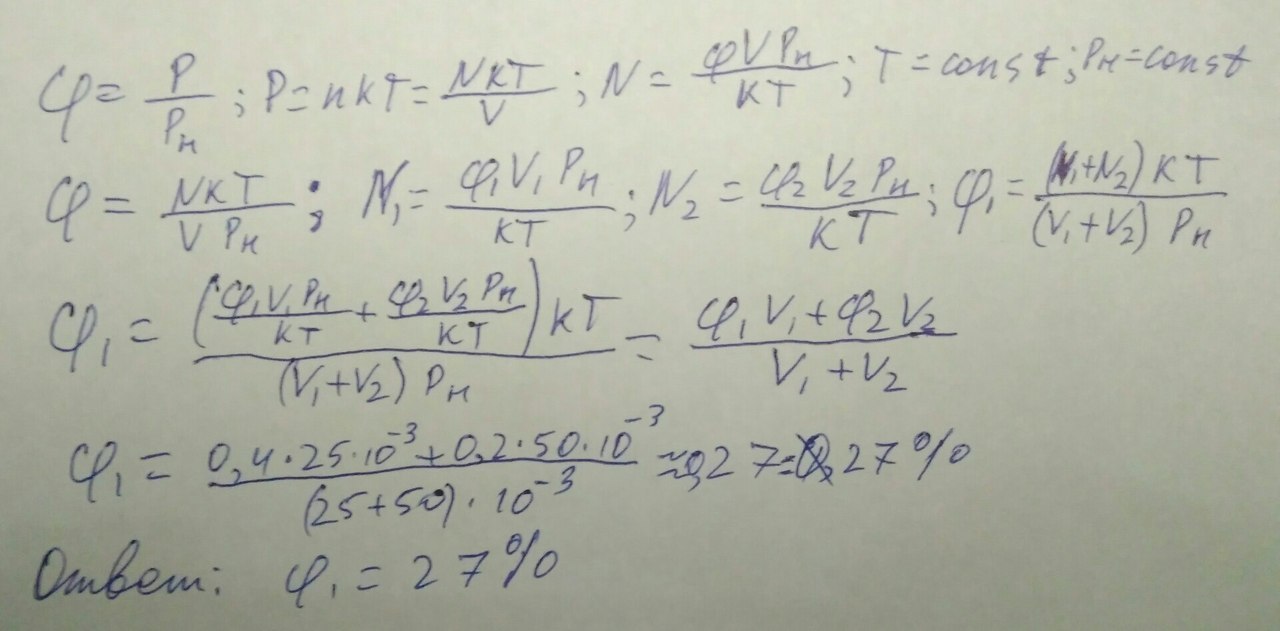 φ = P/Pн ; P = nkT = NKT/V ; N = φVPн/KT ; T = const ; Pн = const
φ = NKT/V Pн ; N₁ = φ₁V₁Pн/KT ; N₂ = φ₂V₂Pн/KT ; φ₁ = (N₁+N₂)KT/(V₁+V₂) Pн
φ₁ = (φ₁V₁Pн/KT + φ₂V₂Pн/KT)kT/(V₁+V₂) Pн = φ₁V₁+φ₂V₂/V₁+V₂
φ₁ = 0,4·25·10⁻³+0,2·50·10⁻³/(25+50)·10⁻³ ≈ 0,27 = 27%
Ответ: φ₁ = 27%